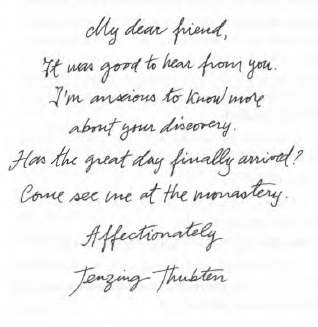 My dear friend,
It was good to hear from you.
I'm anxious to know more
about your discovery.
Has the great day finally arrived?
Come see me at the monastery.
Affectionately
Tenzing Thubten